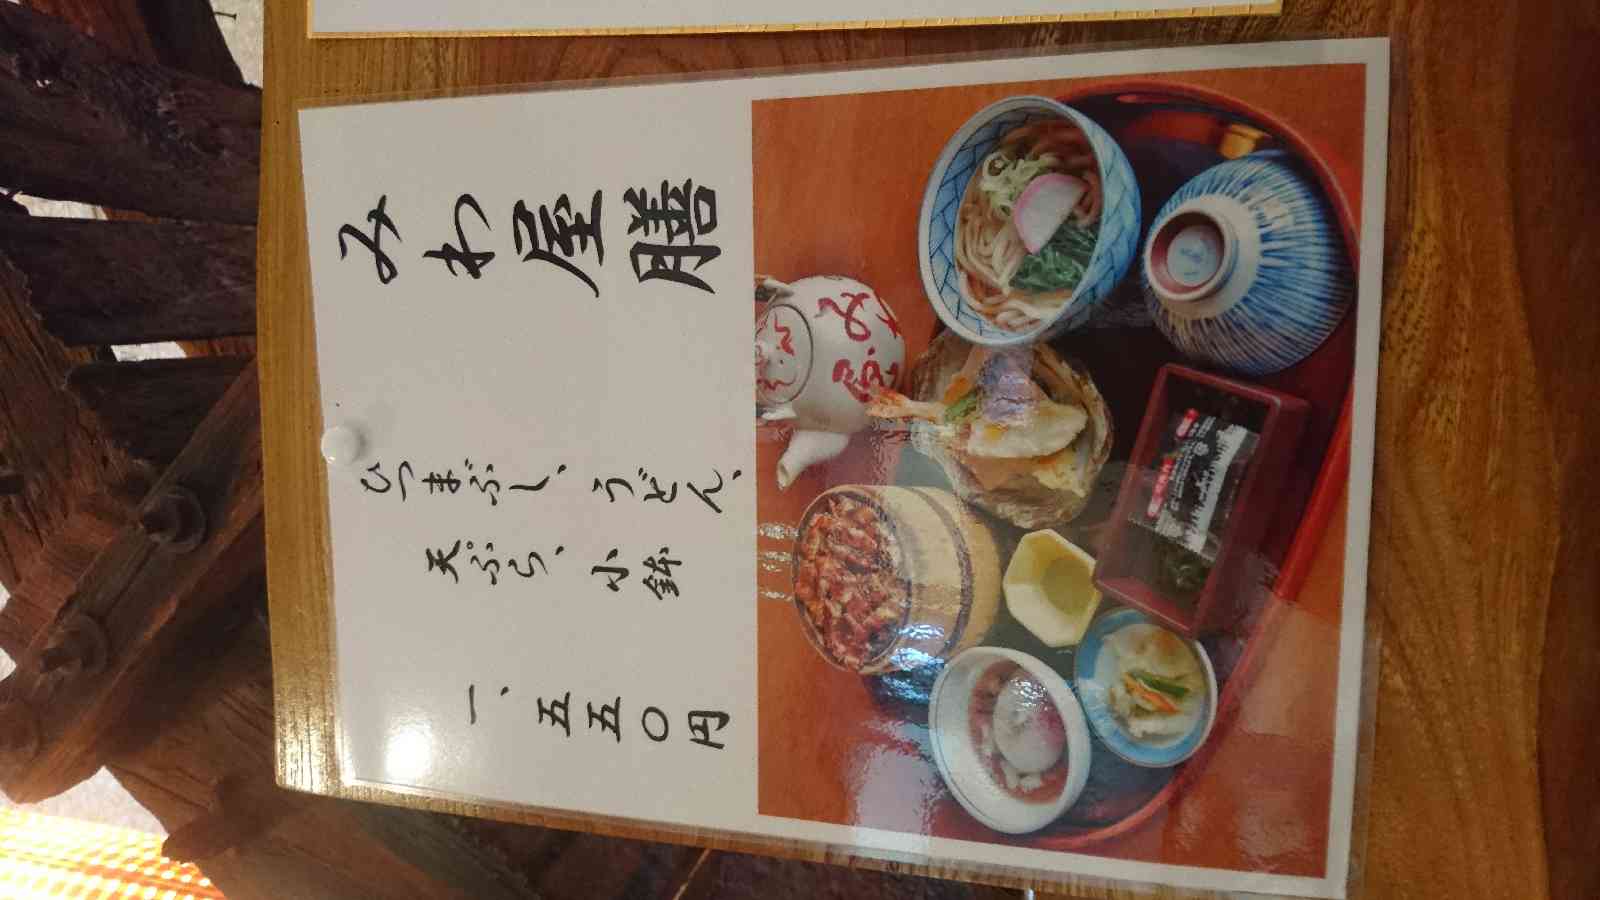 みわ屋膳
ひつまぶし、うどん、
天ぷら、小鉢
一、五五〇円